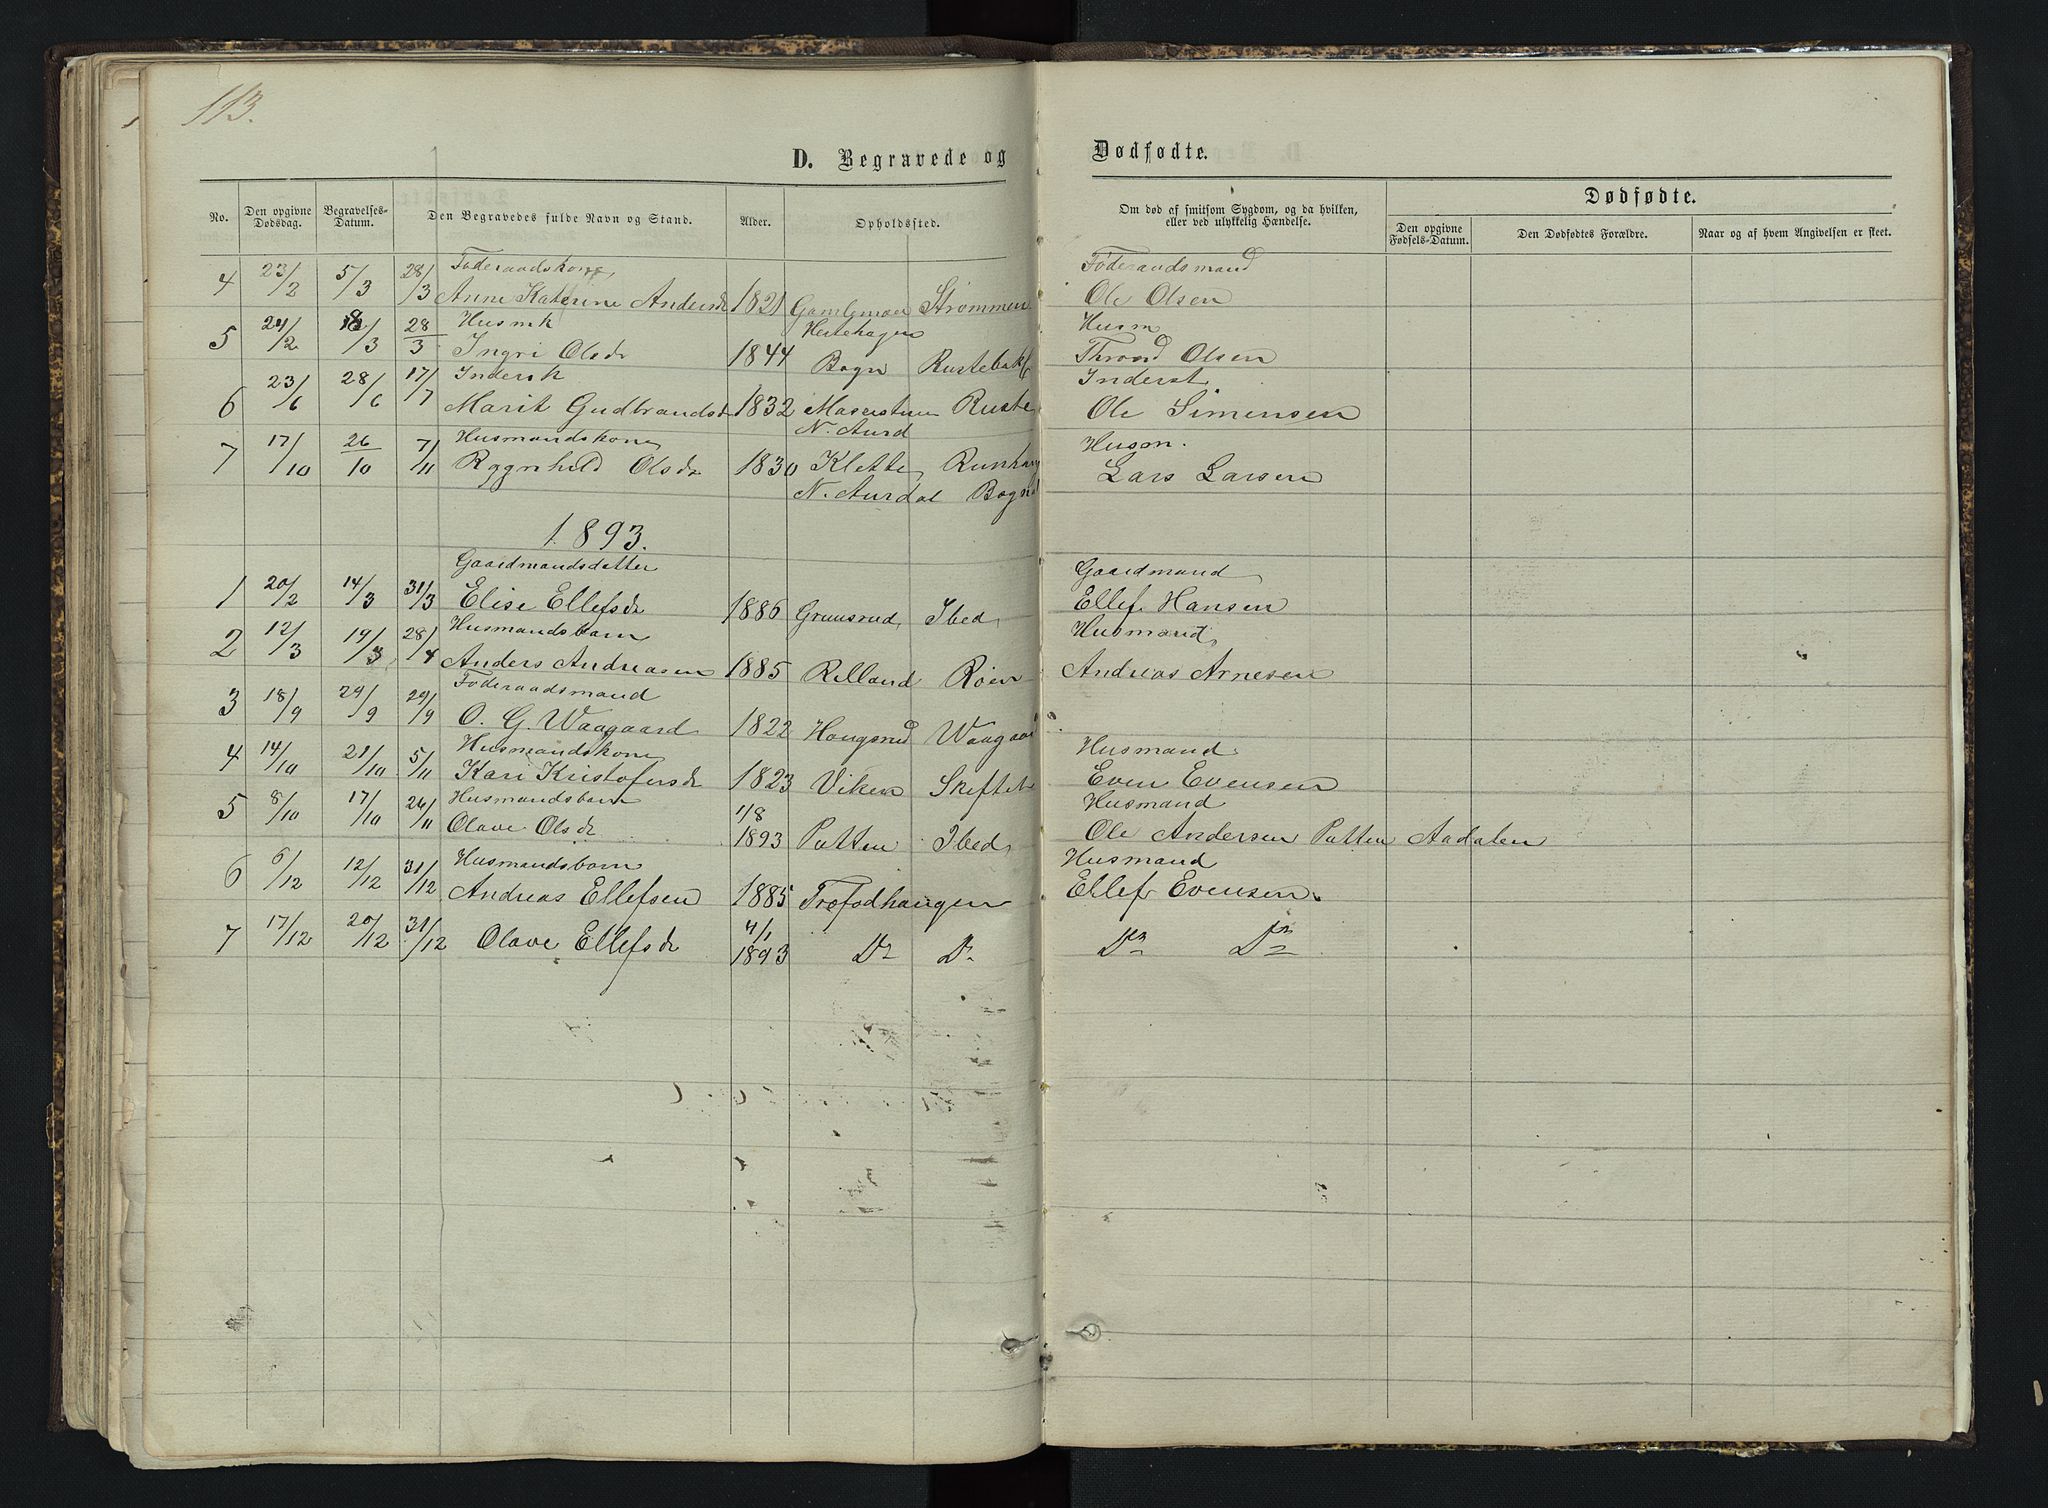 113.
D. Begravede og Dødfødte.
No. Den opgivne Dødsdag. Begravelses-Datum. Den Begravedes fulde Navn og Stand. Alder. Opholdssted. Om død af smitsom Sygdom, og da hvilken, eller ved ulykkelig Hændelse. Dødfødte.
Den opgivne Fødsels-Datum. Den Dødfødtes Forældre. Naar og af hvem Angivelsen er skeet.
Føderaadskone Føderaadsmand
4 23/2 5/3 28/3 Anne Katerine Andersdr 1821 Gamlemoen Strømmen Ole Olsen
Husmk Hestehagen Husm
5 24/2 /3 28/3 Ingri Olsdr 1844 Bagn Rustebakk Thrond Olsen
Inderstk Inderst
6 23/6 28/6 17/7 Marit Gudbrandsdr 1832 Ruste Ole Simensen
N. Aurd
Husmandskone Husm.
7 17/10 26/10 7/11 Ragnhild Olsdr 1830 Klette Lars Larsen
N. Aurdal Bagn
1893.
Gaardmandsdatter Gaardmand
1 20/2 14/3 31/3 Elise Ellefsdr 1886 Gruusrud Ibed Ellef Hansen
Husmandsbarn Husmand
2 12/3 19/3 28/4 Anders Andreasen 1885 Rilland Røien Andreas Arnesen
Føderaadsmand
3 18/9 24/9 29/9 O. G. Waagaard 1822 Haugsrud Waagaar
Husmandskone Husmand
4 14/10 21/10 5/11 Kari Kristofersdr 1823 Viken Skiftet Even Evensen
Husmandsbarn 1/8 Husmand
5 8/10 17/10 26/11 Olave Olsdr 1893 Putten Ibed Ole Andersen Putten Aadalen
Husmandsbarn Husmand
6 6/12 12/12 31/12 Andreas Ellefsen 1885 Trøfodhaugen Ellef Evensen.
7 17/12 20/12 31/12 Olave Ellefsdr 4/1 1893 Do Do Do Do